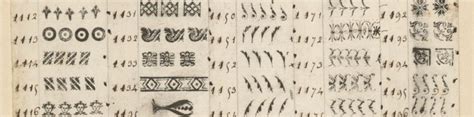 1112 1131 1150 1171 1192
1113 1132 1151 1172 1193
1114 1133 1152 1173 1194
1115 1134 1153 1174 1195
1116 1135 1154 1175 1196